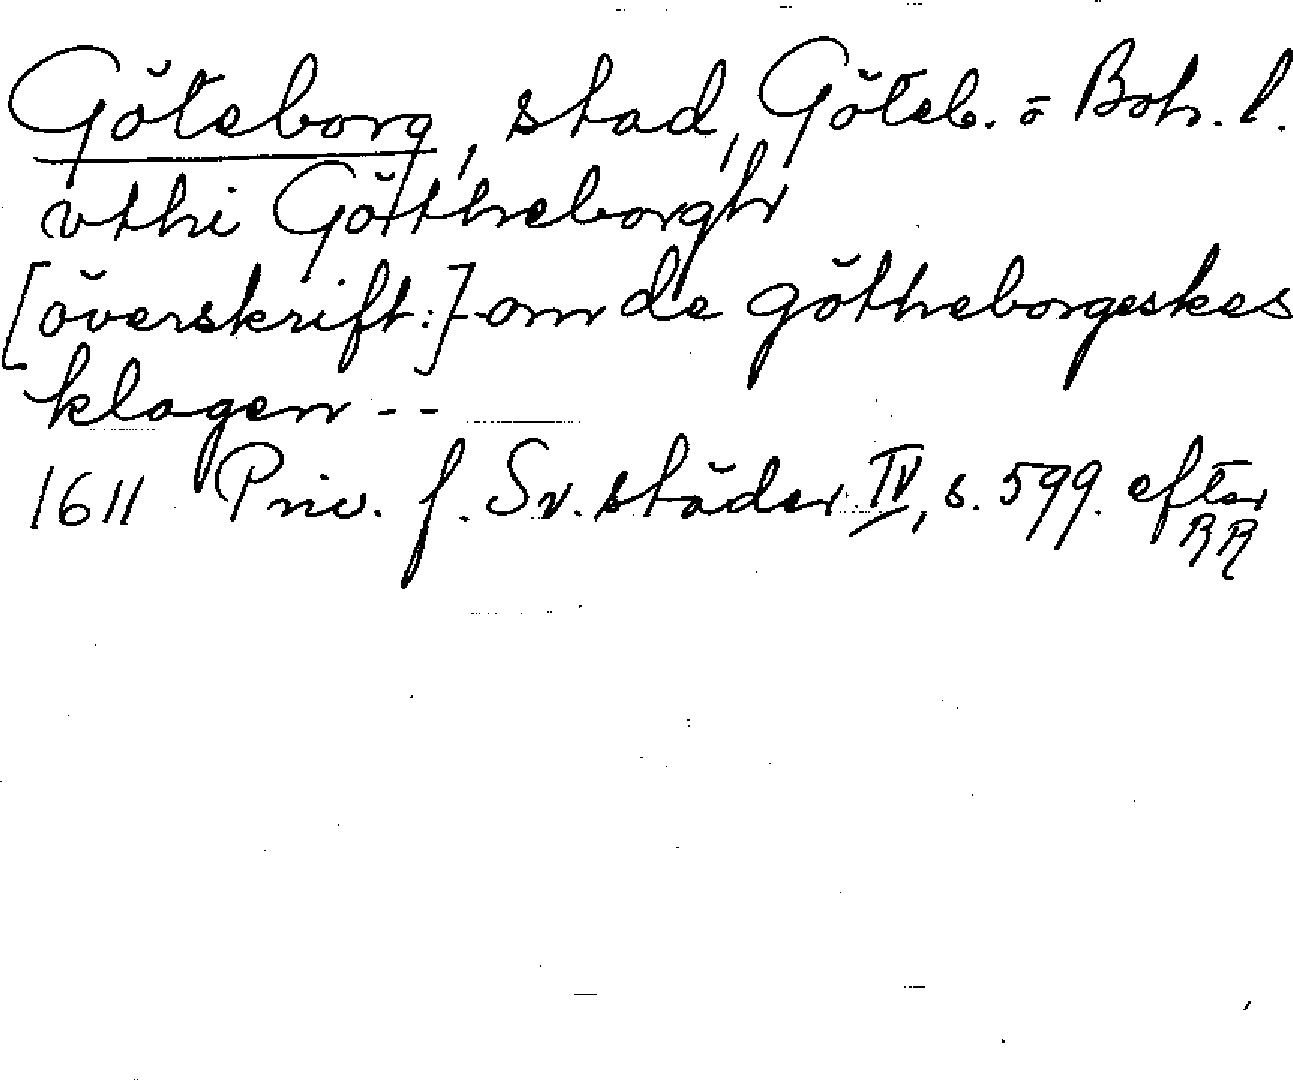 Göteborg, stad, Göteb. o Boh. l.
vthi Göttheborgh
[överskrift:] om de götheborgeskes
klagen --
1611 Priv. f. Sv. städer IV, s. 599. efter
RR